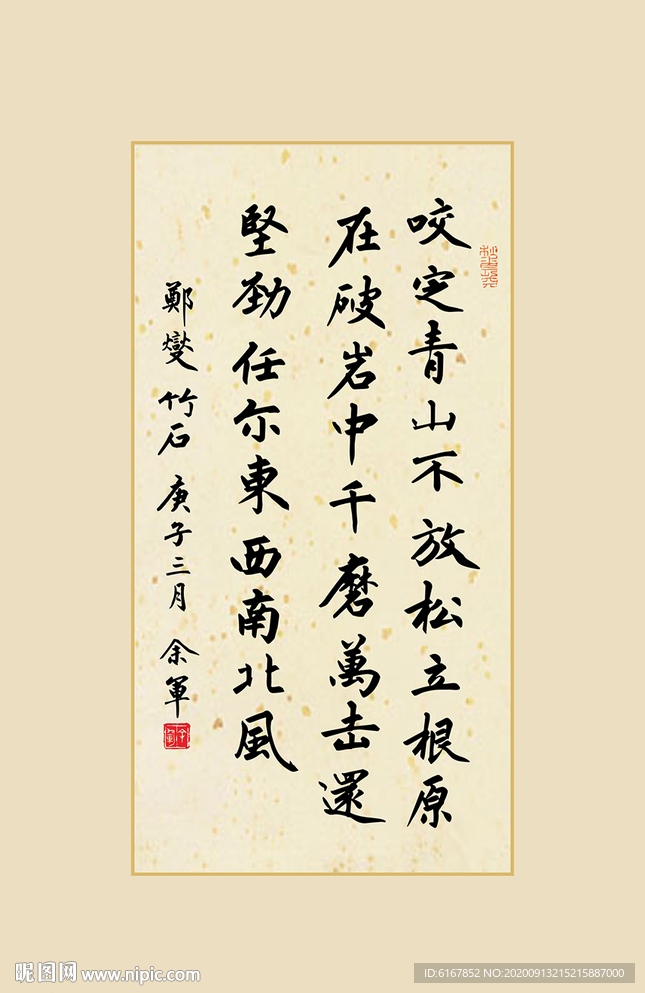 咬定青山不放松立根原
在破岩中千磨萬击還
堅勁任尔東西南北風
鄭燮竹石 庚子三月 余軍
昵图网 www.nipic.com
ID:6167852 NO:20200913215215887000